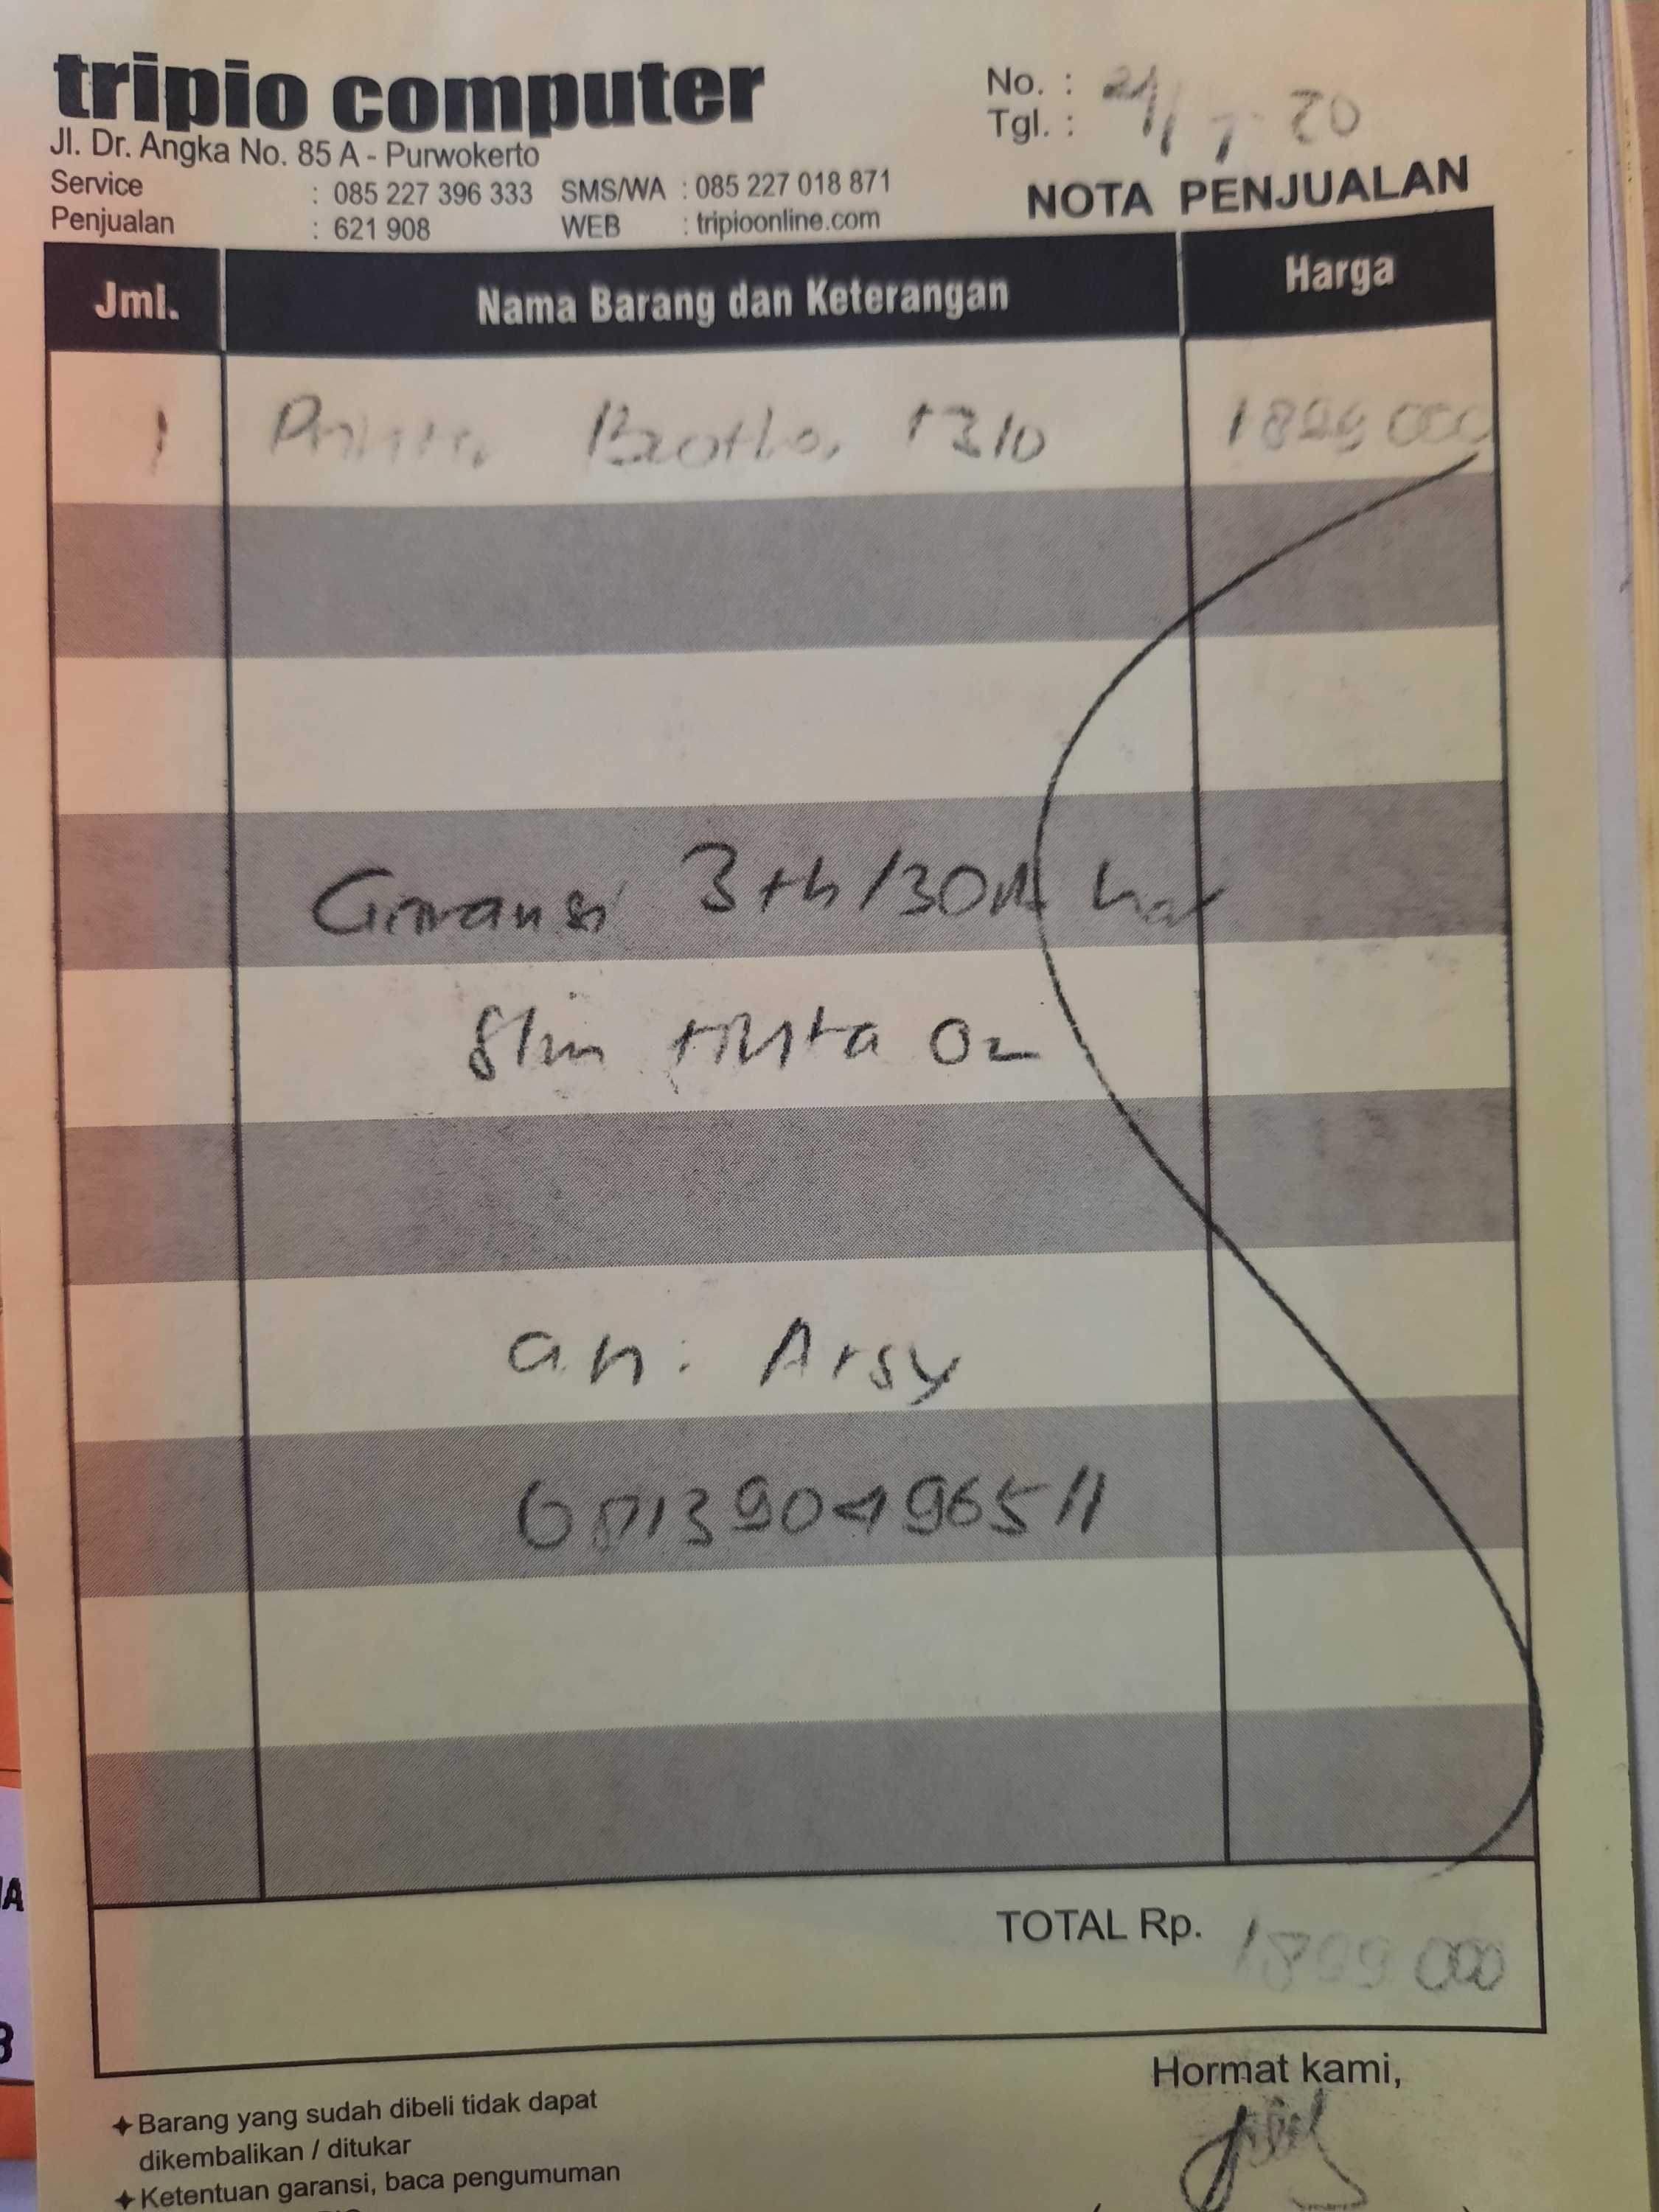 tripio computer
Jl. Dr. Angka No. 85 A - Purwokerto
Service : 085 227 396 333 SMS/WA : 085 227 018 871
Penjualan : 621 908 WEB : tripioonline.com
No. :
Tgl. : 21/7 20
NOTA PENJUALAN
Jml. Nama Barang dan Keterangan Harga
1 Printer Brother T310 1899 000
Garansi 3th/30
tinta
an: Arsy
081390496511
TOTAL Rp. 1899 000
Hormat kami,
✦ Barang yang sudah dibeli tidak dapat
dikembalikan / ditukar
✦ Ketentuan garansi, baca pengumuman